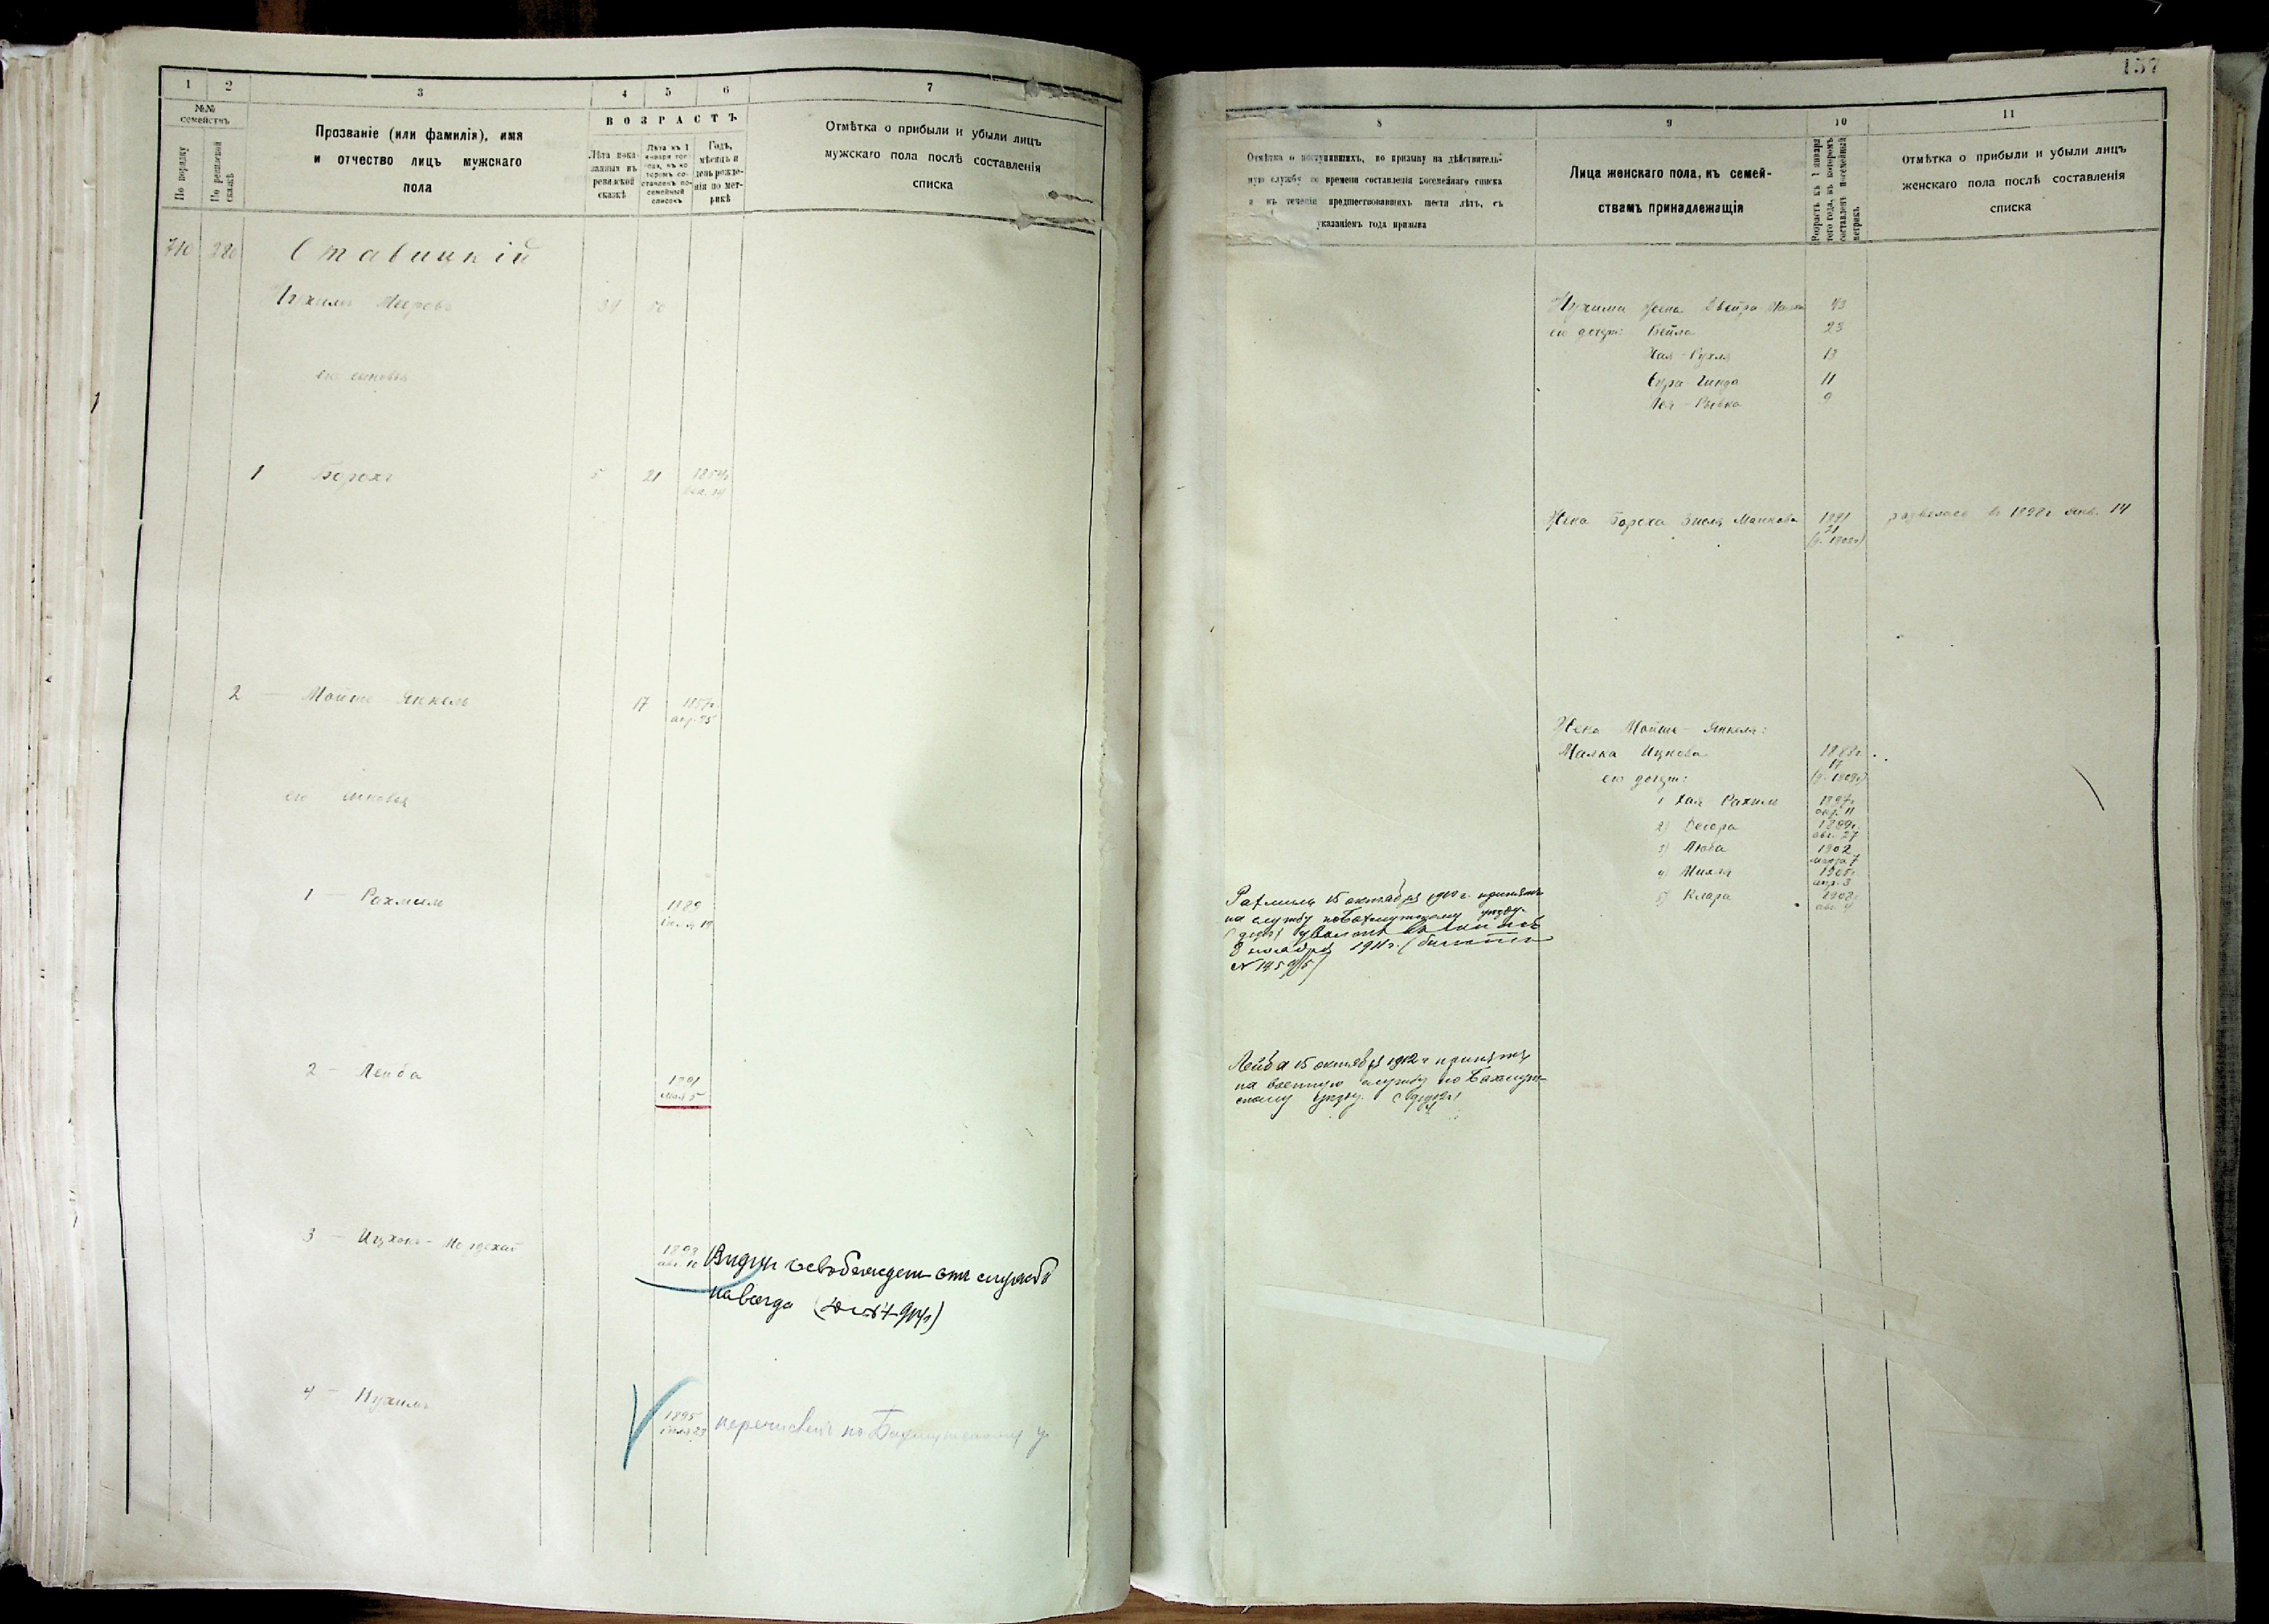 1
2
3
4
5
6
7
№№ семействъ
По порядку
По ревизской сказкѣ
Прозваніе (или фамилія), имя
и отчество лицъ мужскаго
пола
ВОЗРАСТЪ
Лѣта пока-
занныя въ
ревизской
сказкѣ
Лѣта къ 1
января того
года, въ ко-
торомъ со-
ставленъ по-
семейный
списокъ
Годъ,
мѣсяцъ и
день рожде-
нія по мет-
рикѣ
Отмѣтка о прибыли и убыли лицъ
мужскаго пола послѣ составленія
списка
710 280 Ставицкій
Нухимъ 34 50
его сыновья
1 Борохъ 5 21
2 — Мойше Янкель 17
его сыновья
1 — Рахмиль 1889
2 — Лейба 1891
мая 5
3 — Ицхокъ-Мордехай 1893
освобожденъ отъ службы
навсегда
4 — Нухимъ 1895
перечисленъ по Бахмутскому у.
157
8
9
10
11
Отмѣтка о поступившихъ, по призыву на дѣйствитель-
ную службу со времени составленія посемейнаго списка
и въ теченіи предшествовавшихъ шести лѣтъ, съ
указаніемъ года призыва
Лица женскаго пола, къ семей-
ствамъ принадлежащія
Возрастъ къ 1 января
того года, въ которомъ
составленъ посемейный
Отмѣтка о прибыли и убыли лицъ
женскаго пола послѣ составленія
списка
Нухима жена Двейра 43
его дочери: Бейла 23
Хая-Рухля 13
Сура-Гинда 11
Лея-Ривка 9
Жена Бороха Зисля 21 развелась въ 1898г. янв. 14
Жена Мойше-Янкеля:
Малка Ицкова
17
его дочери:
1 Хая Рахиль 1897г.
2) Двора 1899г.
авг. 27
3) Люба 1902
марта 7
4) 1905г.
апр. 3
5) Клара 1908г.
Рахмиль 15 октября 1910 г. принятъ
на службу по Бахмутскому уѣзду.
8 ноября 1911 г. (билетъ
Лейба 15 октября 1912 г принятъ
на военную службу по Бахмут-
скому уѣзду.